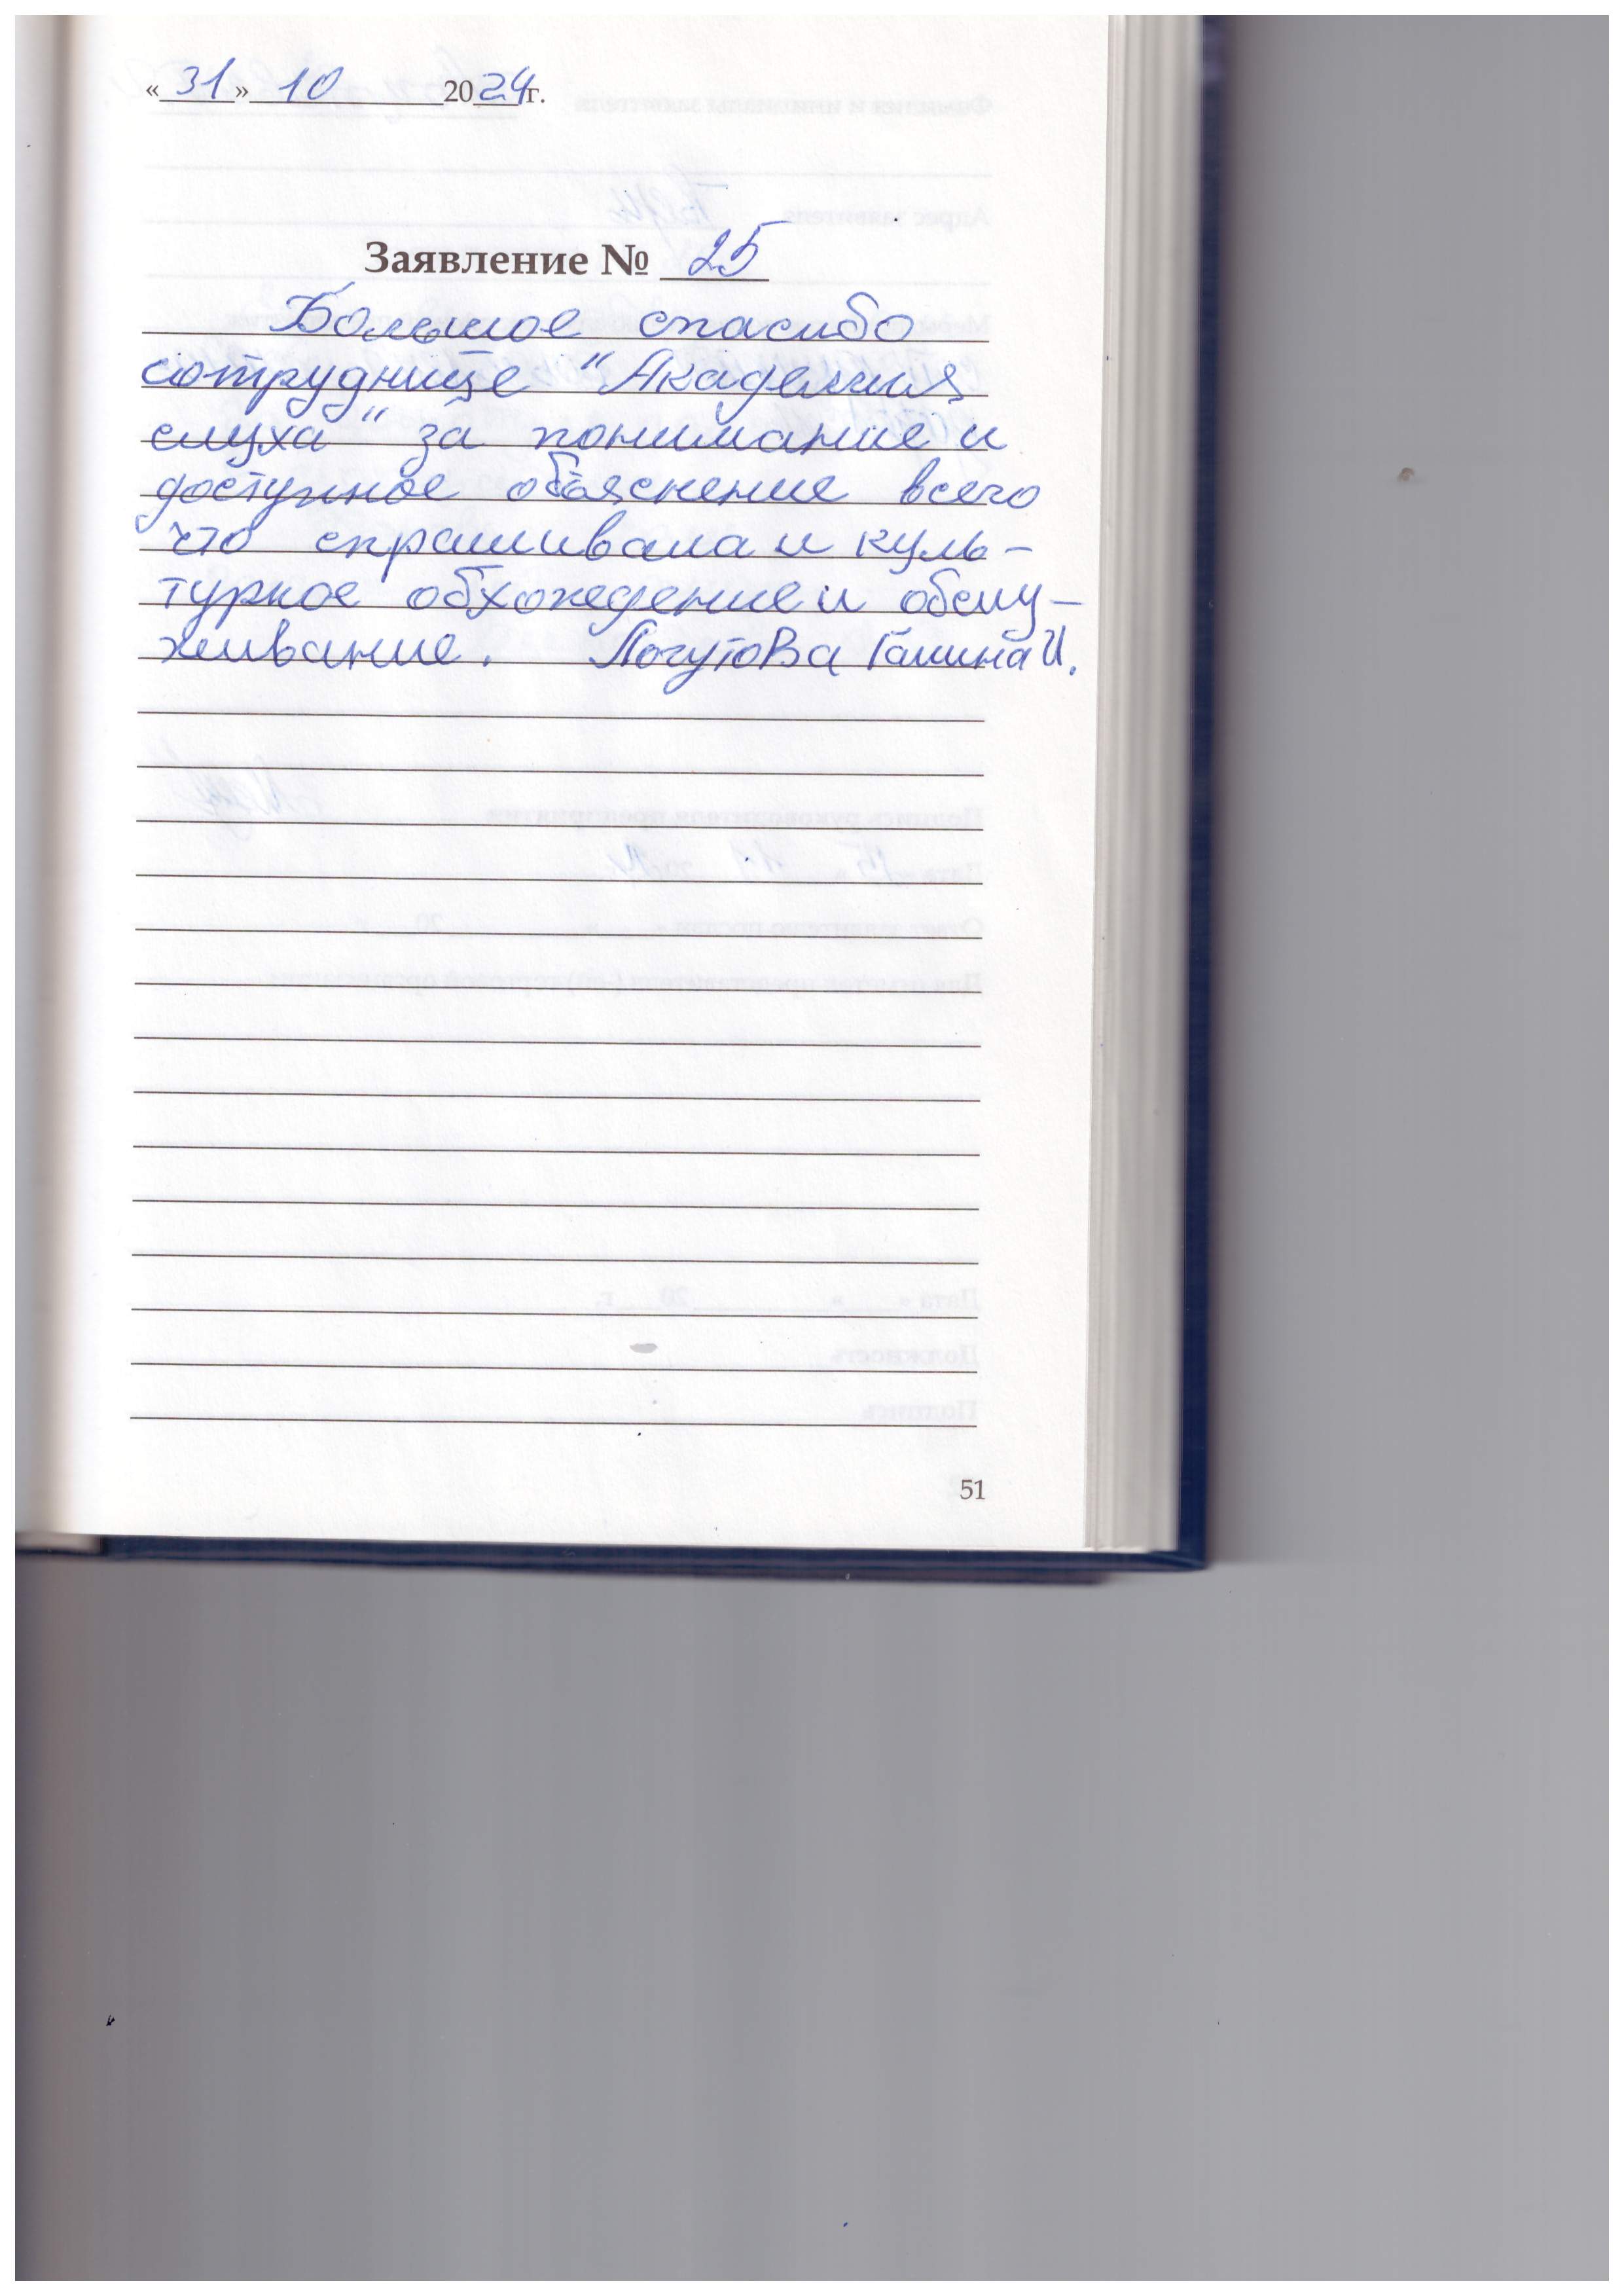 «31» 10 2024 г.
Заявление № 25
Большое спасибо
сотруднице "Академия
слуха" за понимание и
доступное объяснение всего
что спрашивала и куль-
турное обхождение и обслу-
живание. Логутова Галина И.
51